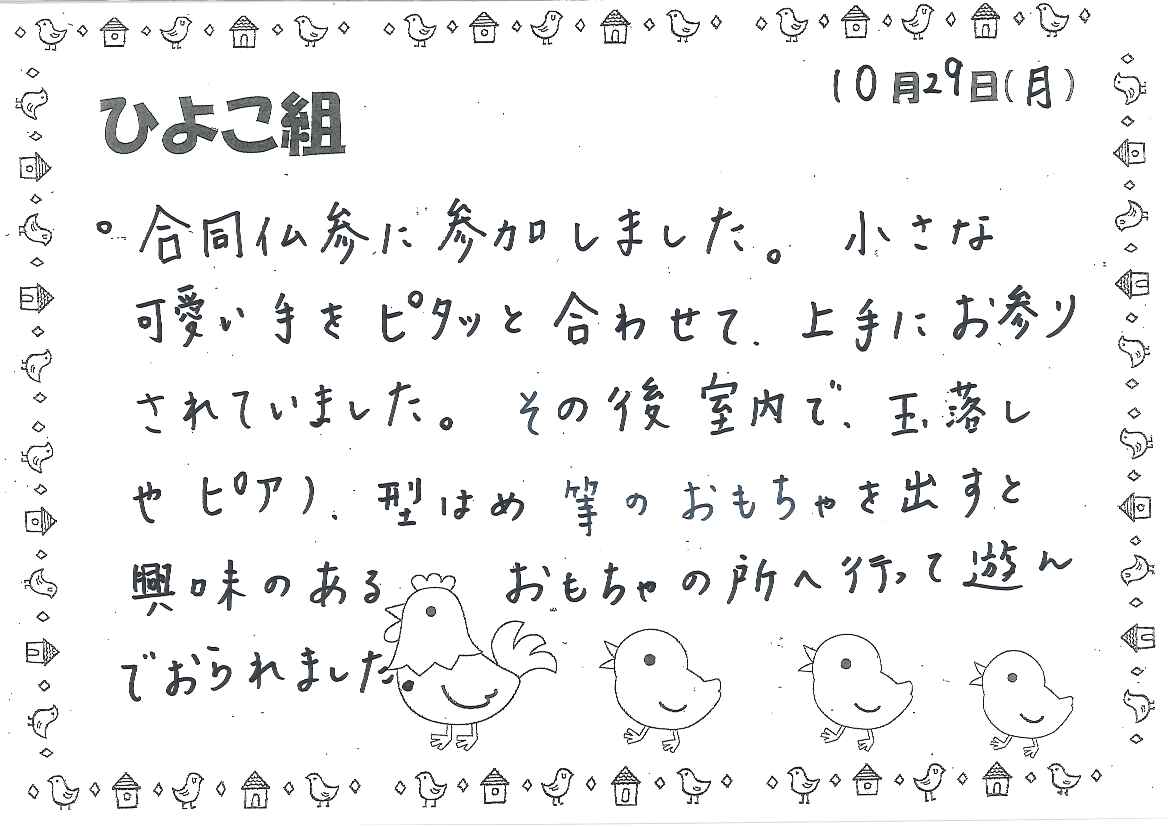 10月29日(月)
ひよこ組
。合同仏参に参加しました。 小さな
可愛い手をピタッと合わせて、上手にお参り
されていました。 その後室内で、玉落し
やピアノ、型はめ等のおもちゃを出すと
興味のある おもちゃの所へ行って遊ん
でおられました。